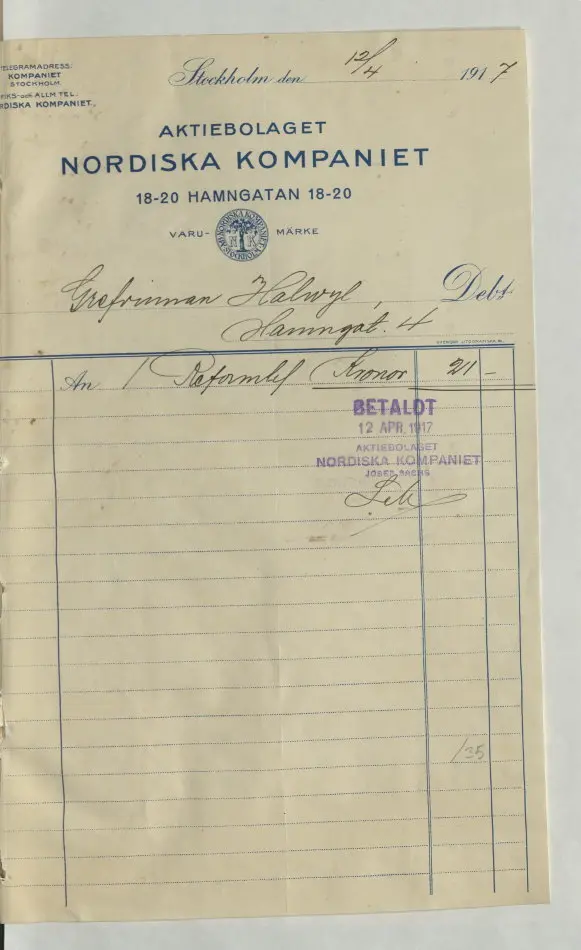 TELEGRAMADRESS:
KOMPANIET
STOCKHOLM.
RIKS-och ALLM TEL.
NORDISKA KOMPANIET.
Stockholm den 12/4 1917
AKTIEBOLAGET
NORDISKA KOMPANIET
18-20 HAMNGATAN 18-20
VARU- MÄRKE
NORDISKA KOMPANIET
STOCKHOLM
NK
Grefvinnan Halwyl, Debt
Hamngat. 4
An 1 Reformlif Kronor 21 -
BETALDT
12 APR. 1917
AKTIEBOLAGET
NORDISKA KOMPANIET
JOSEF SACHS
/35